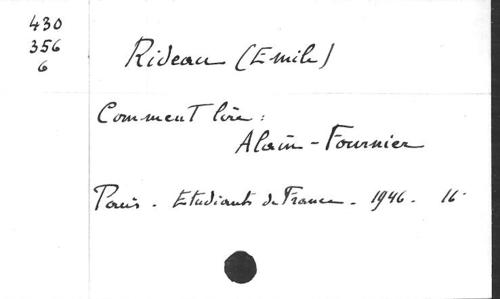 430
356
6
Rideau (Emile)
Comment lire :
Alain-Fournier
Paris - Etudiants de France - 1946 - 16